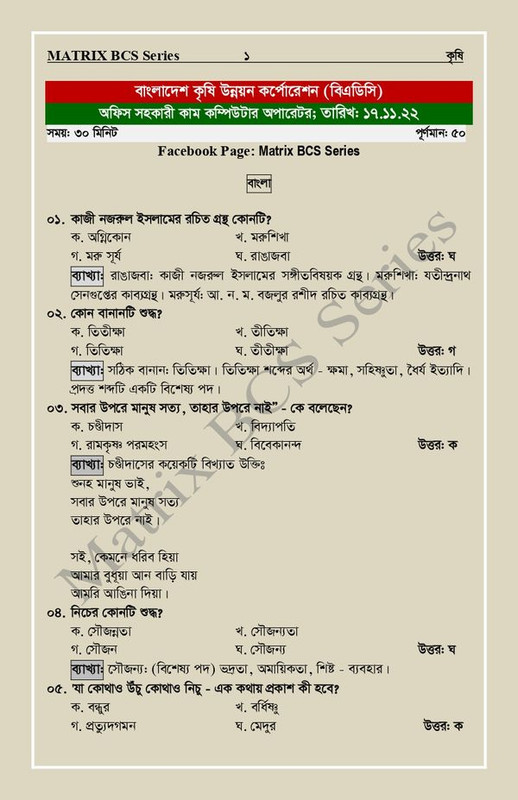 MATRIX BCS Series ১ কৃষি
বাংলাদেশ কৃষি উন্নয়ন কর্পোরেশন (বিএডিসি)
অফিস সহকারী কাম কম্পিউটার অপারেটর; তারিখ: ১৭.১১.২২
সময়: ৩০ মিনিট পূর্ণমান: ৫০
Facebook Page: Matrix BCS Series
বাংলা
০১. কাজী নজরুল ইসলামের রচিত গ্রন্থ কোনটি?
ক. অগ্নিকোন খ. মরুশিখা
গ. মরু সূর্য ঘ. রাঙাজবা উত্তর: ঘ
ব্যাখ্যা: রাঙাজবা: কাজী নজরুল ইসলামের সঙ্গীতবিষয়ক গ্রন্থ। মরুশিখা: যতীন্দ্রনাথ
সেনগুপ্তের কাব্যগ্রন্থ। মরুসূর্য: আ. ন. ম. বজলুর রশীদ রচিত কাব্যগ্রন্থ।
০২. কোন বানানটি শুদ্ধ?
ক. তিতীক্ষা খ. তীতিক্ষা
গ. তিতিক্ষা ঘ. তীতীক্ষা উত্তর: গ
ব্যাখ্যা: সঠিক বানান: তিতিক্ষা। তিতিক্ষা শব্দের অর্থ - ক্ষমা, সহিষ্ণুতা, ধৈর্য ইত্যাদি।
প্রদত্ত শব্দটি একটি বিশেষ্য পদ।
০৩. সবার উপরে মানুষ সত্য, তাহার উপরে নাই” - কে বলেছেন?
ক. চণ্ডীদাস খ. বিদ্যাপতি
গ. রামকৃষ্ণ পরমহংস ঘ. বিবেকানন্দ উত্তর: ক
ব্যাখ্যা: চণ্ডীদাসের কয়েকটি বিখ্যাত উক্তিঃ
শুনহ মানুষ ভাই,
সবার উপরে মানুষ সত্য
তাহার উপরে নাই।
সই, কেমনে ধরিব হিয়া
আমার বুধূয়া আন বাড়ি যায়
আমরি আঙিনা দিয়া।
০৪. নিচের কোনটি শুদ্ধ?
ক. সৌজন্নতা খ. সৌজন্যতা
গ. সৌজন ঘ. সৌজন্য উত্তর: ঘ
ব্যাখ্যা: সৌজন্য: (বিশেষ্য পদ) ভদ্রতা, অমায়িকতা, শিষ্ট - ব্যবহার।
০৫. 'যা কোথাও উঁচু কোথাও নিচু - এক কথায় প্রকাশ কী হবে?
ক. বন্ধুর খ. বর্ধিষ্ণু
গ. প্রত্যুদগমন ঘ. মেদুর উত্তর: ক
Matrix BCS Series